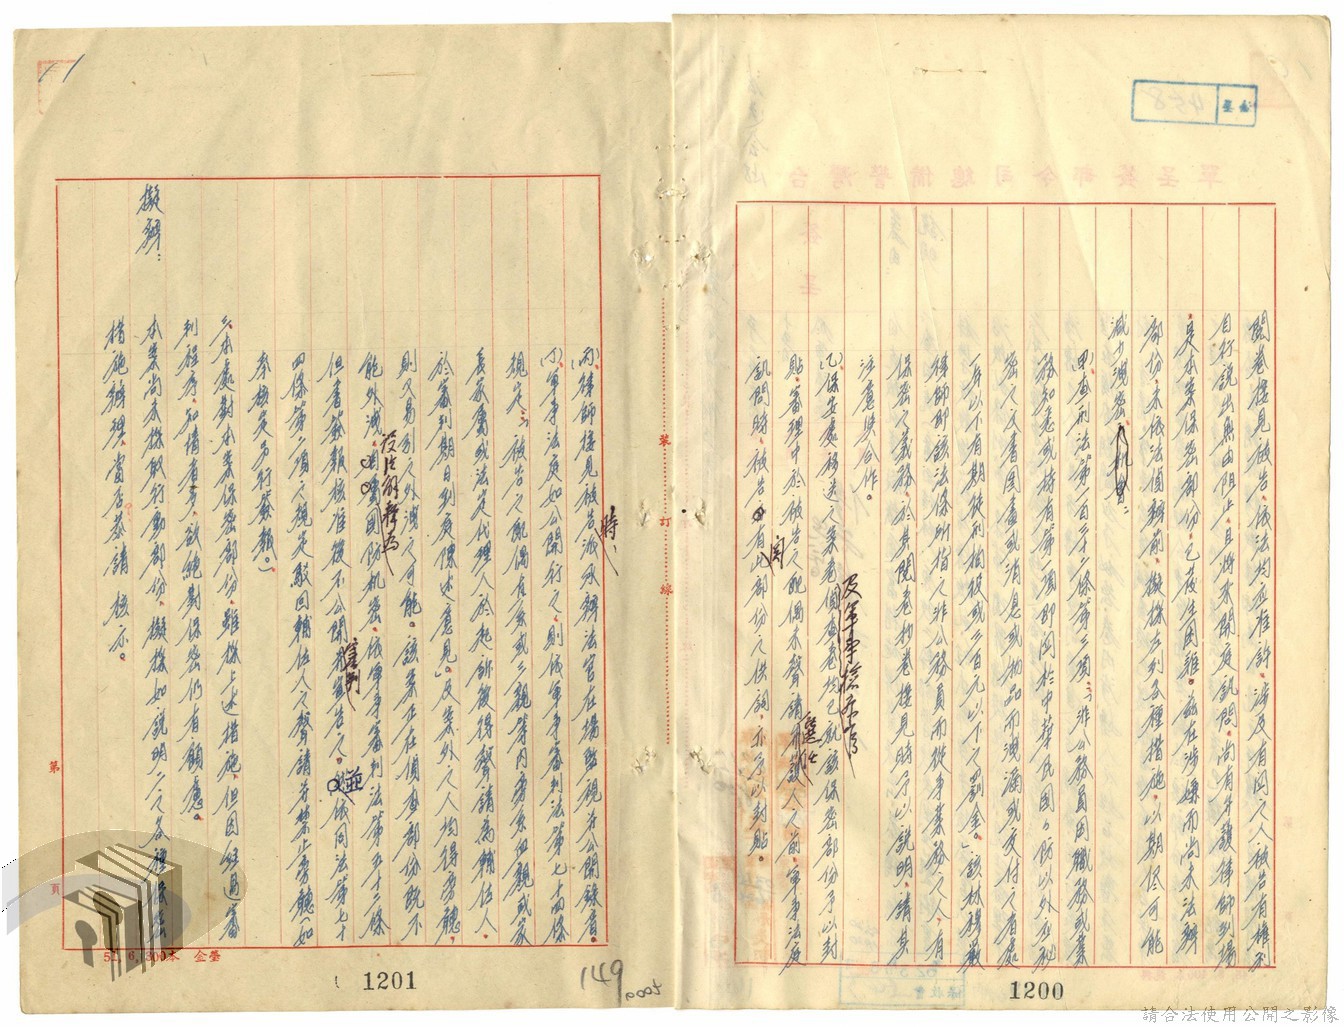 閱卷接見被告，依法均應准許，涉及有關之人被告有權利
自行說出無由阻止，且將來開庭訊問，尚有辯護律師到場
是本案保密部份，已發生困難。茲在涉嫌而尚未法辦
部份，未依法偵辦前，擬採左列各種措施，以期儘可能
減少洩密之机會：
甲查刑法第一百三十二條第三項：「非公務員因職務或業
務知悉或持有第一項即關於中華民國國防以外應秘
密之文書圖畫或消息或物品而洩漏或交付之者處
一年以下有期徒刑拘役或三百元以下之罰金。」該林穆嚴
律師即該法條所指之非公務員而從事業務之人，有
保密之義務，於其閱卷抄卷接見時予以說明，請其
注意與合作。
乙保安處移送之案卷偵查卷均已就該保密部份予以封
及軍事檢察官
貼，審理中於被告之配偶未聲請選任辯護人之前，軍事法庭
訊問時，被告如有關此部份之供詞，亦予以封貼。
(丙)律師接見被告時，派承辦法官在場監視並公開錄音。
(丁)軍事法庭如公開行之，則依軍事審判法第七十四條
規定：「被告之配偶直系或三親等內旁系血親或家
長家屬或法定代理人於起訴後得聲請為輔佐人
於審判期日到庭陳述意見」及案外之人均得旁聽，
則又易引之外洩之可能。該案正在偵查部份既不
能外洩，設法解釋為國防机密，依軍事審判法第五十二條
但書簽報核准後不公開審判宣告之。並依同法第七十
四條第二項之規定駁回輔佐人之聲請並禁止旁聽（如
奉核定另行簽報。）
三、本處對本案保密部份，雖採上述措施，但因經過審
判程序，知情者多，欲絕對保密仍有顧慮。
擬辦：
本案尚未採取行動部份，擬採如說明二之各種保密
措施辦理，當否恭請 核示。
裝
訂
線
第
頁
51，6，300本 金發
1201
149
0005
1200
458
請合法使用公開之影像